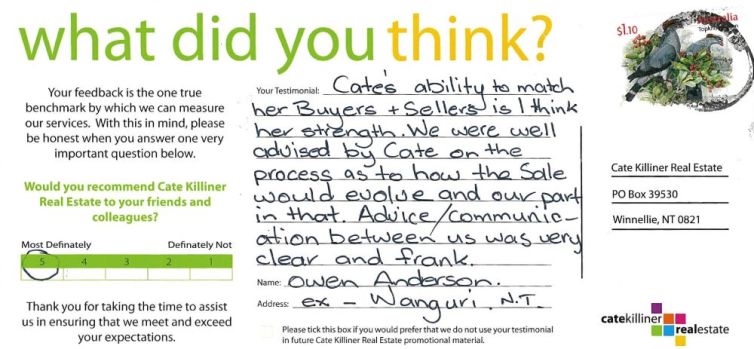 what did you think?
Your feedback is the one true
benchmark by which we can measure
our services. With this in mind, please
be honest when you answer one very
important question below.
Would you recommend Cate Killiner
Real Estate to your friends and
colleagues?
Most Definately Definately Not
5 4 3 2 1
Thank you for taking the time to assist
us in ensuring that we meet and exceed
your expectations.
Your Testimonial: Cate's ability to match
her Buyers + Sellers is I think
her strength. We were well
advised by Cate on the
process as to how the Sale
would evolve and our part
in that. Advice/communic-
ation between us was very
clear and frank.
Name: Owen Anderson.
Address: ex - Wanguri. N.T.
Please tick this box if you would prefer that we do not use your testimonial
in future Cate Killiner Real Estate promotional material.
$1.10
Australia
Cate Killiner Real Estate
PO Box 39530
Winnellie, NT 0821
catekilliner
realestate